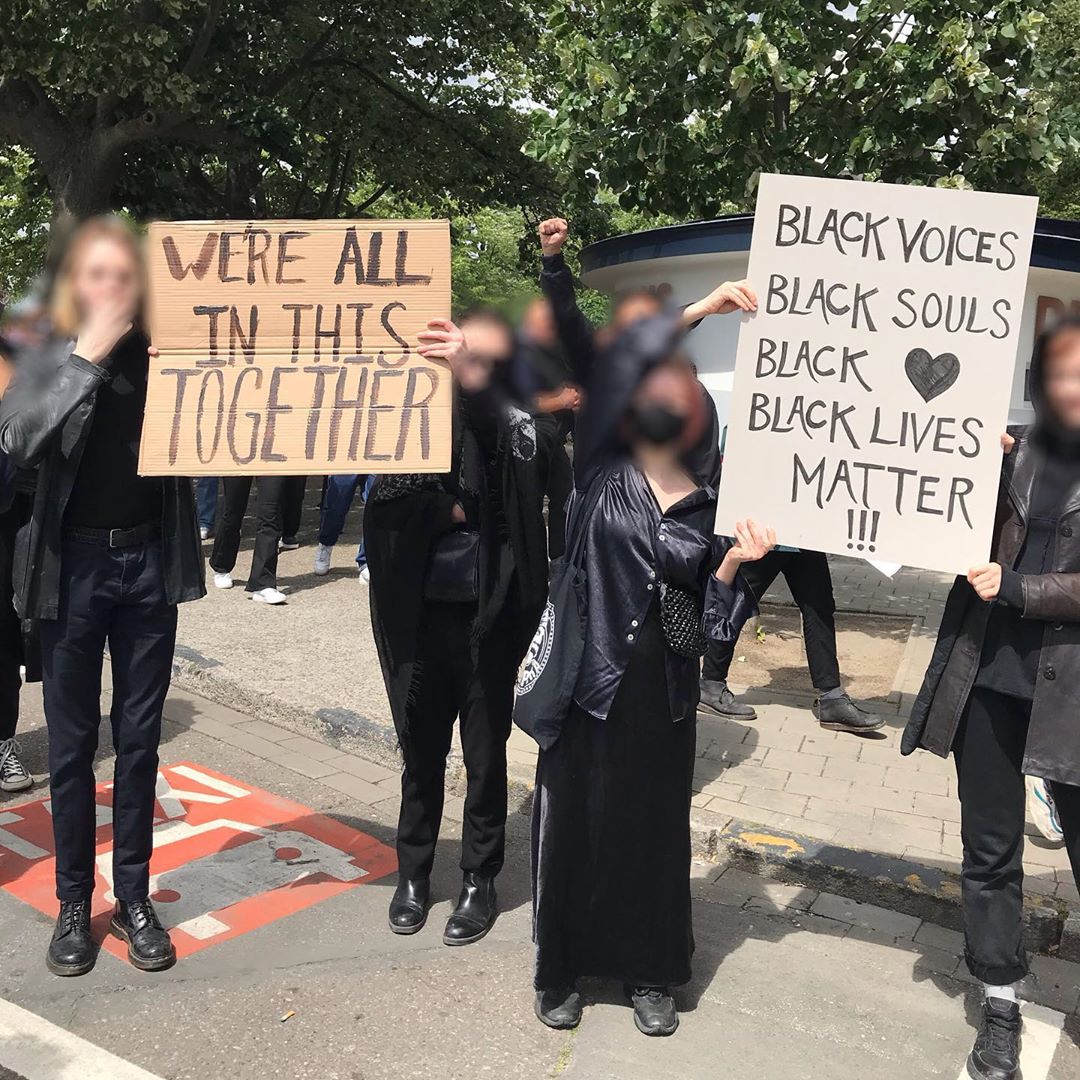 WE'RE ALL
IN THIS
TOGETHER
BLACK VOICES
BLACK SOULS
BLACK ♥
BLACK LIVES
MATTER
!!!